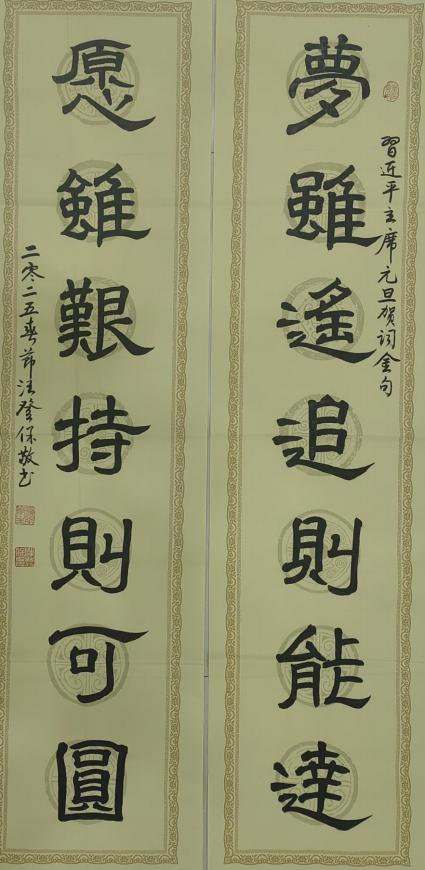 夢雖遙追則能達
習近平主席元旦贺词金句
愿雖艱持則可圓
二零二五春节汪登保敬书